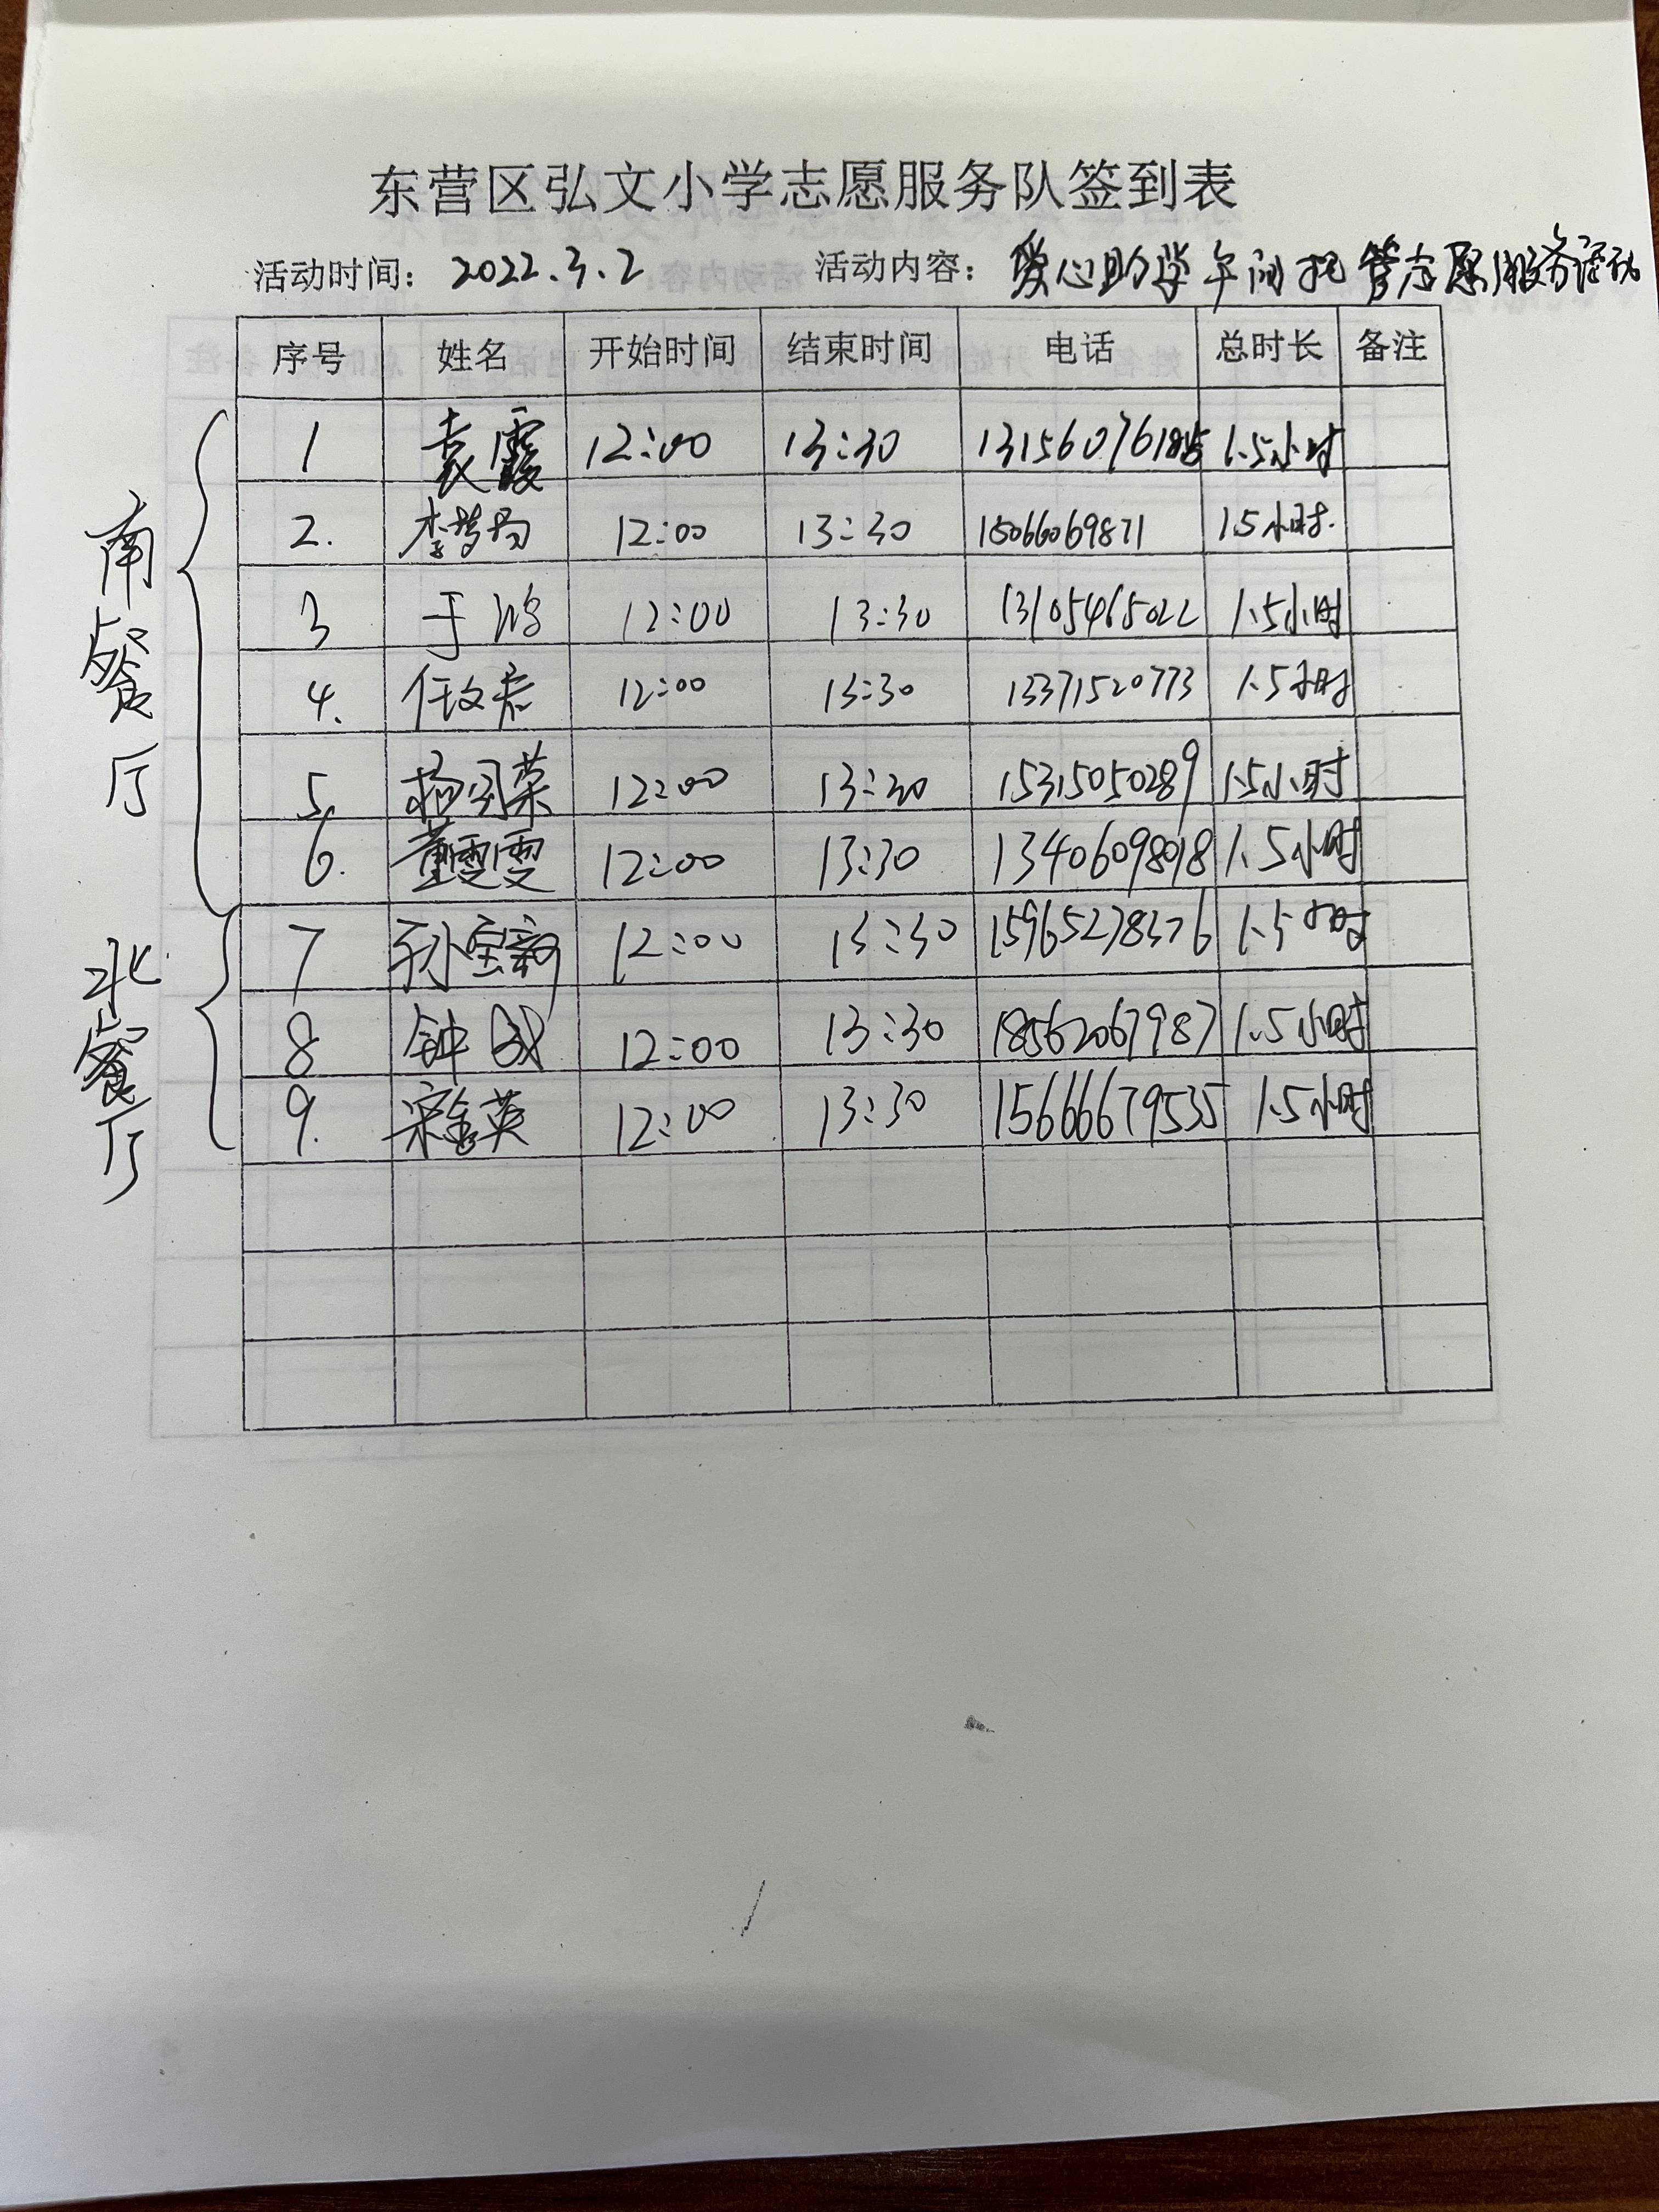 东营区弘文小学志愿服务队签到表
活动时间：2022.3.2 活动内容：爱心助学午间托管志愿服务活动
序号 姓名 开始时间 结束时间 电话 总时长 备注
南餐厅
1 袁霞 12:00 13:30 1.5小时
2. 12:00 13:30 15066069871 1.5小时.
3 于 12:00 13:30 13105465022 1.5小时
4. 任文君 12:00 13:30 13371520773 1.5小时
5. 12:00 13:30 15315050289 1.5小时
6. 董雯雯 12:00 13:30 13406098018 1.5小时
北餐厅
7 12:00 13:30 15965278376 1.5小时
8 钟 12:00 13:30 18562067987 1.5小时
9. 宋金英 12:00 13:30 15666679535 1.5小时